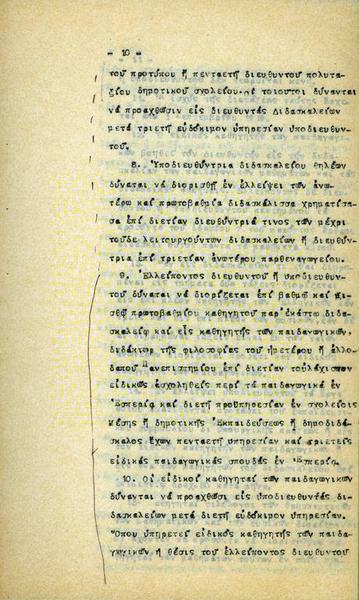 - 10 -
τοῦ προτύπου ἤ πενταετῆ διευθυντοῦ πολυτα-
ξίου δημοτικοῦ σχολείου. Οἱ τοιοῦτοι δύνανται
νά προαχθῶσιν εἰς διευθυντάς Διδασκαλείων
μετά τριετῆ εὐδόκιμον ὑπηρεσίαν ὑποδιευθυν-
τοῦ.
8. Ὑποδιευθύντρια διδασκαλείου θηλέων
δύναται νά διορισθῇ ἐν ἐλλείψει τῶν ἀνω-
τέρω καί πρωτοβαθμία διδασκάλισσα χρηματίσα-
σα ἐπί διετίαν διευθύντριά τινος τῶν μέχρι
τοῦδε λειτουργούντων διδασκαλείων ἤ διευθύν-
τρια ἐπί τριετίαν ἀνωτέρου παρθεναγωγείου.
9. Ἐλλείποντος διευθυντοῦ ἤ ὑποδιευθυν-
τοῦ δύναται νά διορίζεται ἐπί βαθμῷ καί μι-
σθῷ πρωτοβαθμίου καθηγητοῦ παρ' ἑκάστῳ διδα-
σκαλείῳ καί εἷς καθηγητής τῶν παιδαγωγικῶν,
διδάκτωρ τῆς φιλοσοφίας τοῦ ἡμετέρου ἤ ἀλλο-
δαποῦ Πανεπιστημίου ἐπί διετίαν τοὐλάχιστον
εἰδικῶς ἀσχοληθείς περί τά παιδαγωγικά ἐν
Ἑσπερίᾳ καί διετῆ προϋπηρεσίαν ἐν σχολείοις
Μέσης ἤ δημοτικῆς Ἐκπαιδεύσεως ἤ δημοδιδά-
σκαλος ἔχων πενταετῆ ὑπηρεσίαν καί τριετεῖς
εἰδικάς παιδαγωγικάς σπουδάς ἐν Ἑσπερίᾳ.
10. Οἱ εἰδικοί καθηγηταί τῶν παιδαγωγικῶν
δύνανται νά προαχθῶσι εἰς ὑποδιευθυντάς δι-
δασκαλείων μετά διετῆ εὐδόκιμον ὑπηρεσίαν.
Ὅπου ὑπηρετεῖ εἰδικός καθηγητής τῶν παιδα-
γωγικῶν ἡ θέσις τοῦ ἐλλείποντος διευθυντοῦ